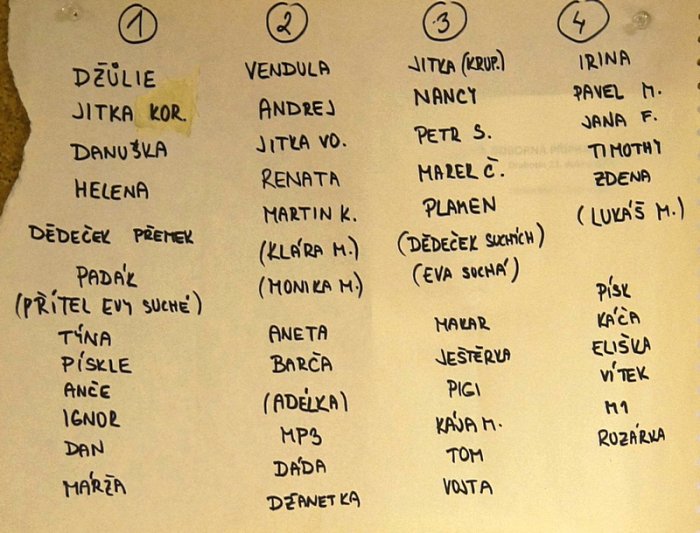 1
DŽŮLIE
JITKA KOR.
DANUŠKA
HELENA
DĚDEČEK PŘEMEK
PADÁK
(PŘÍTEL EVY SUCHÉ)
TÝNA
PÍSKLE
ANČE
IGNOR
DAN
MÁRŽA
2
VENDULA
ANDREJ
JITKA VO.
RENATA
MARTIN K.
(KLÁRA M.)
(MONIKA M.)
ANETA
BARČA
(ADÉLKA)
MP3
DÁDA
DŽANETKA
3
JITKA (KRUP.)
NANCY
PETR S.
MAREK Č.
PLAMEN
(DĚDEČEK SUCHÝCH)
(EVA SUCHÁ)
MAKAR
JEŠTĚRKA
PIGI
KÁJA M.
TOM
VOJTA
4
IRINA
PAVEL M.
JANA F.
TIMOTHY
ZDENA
(LUKÁŠ M.)
PÍSK
KÁČA
ELIŠKA
VÍTEK
M1
ROZÁRKA